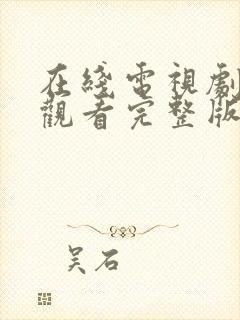 在綫電視劇
觀看完整版
吴石